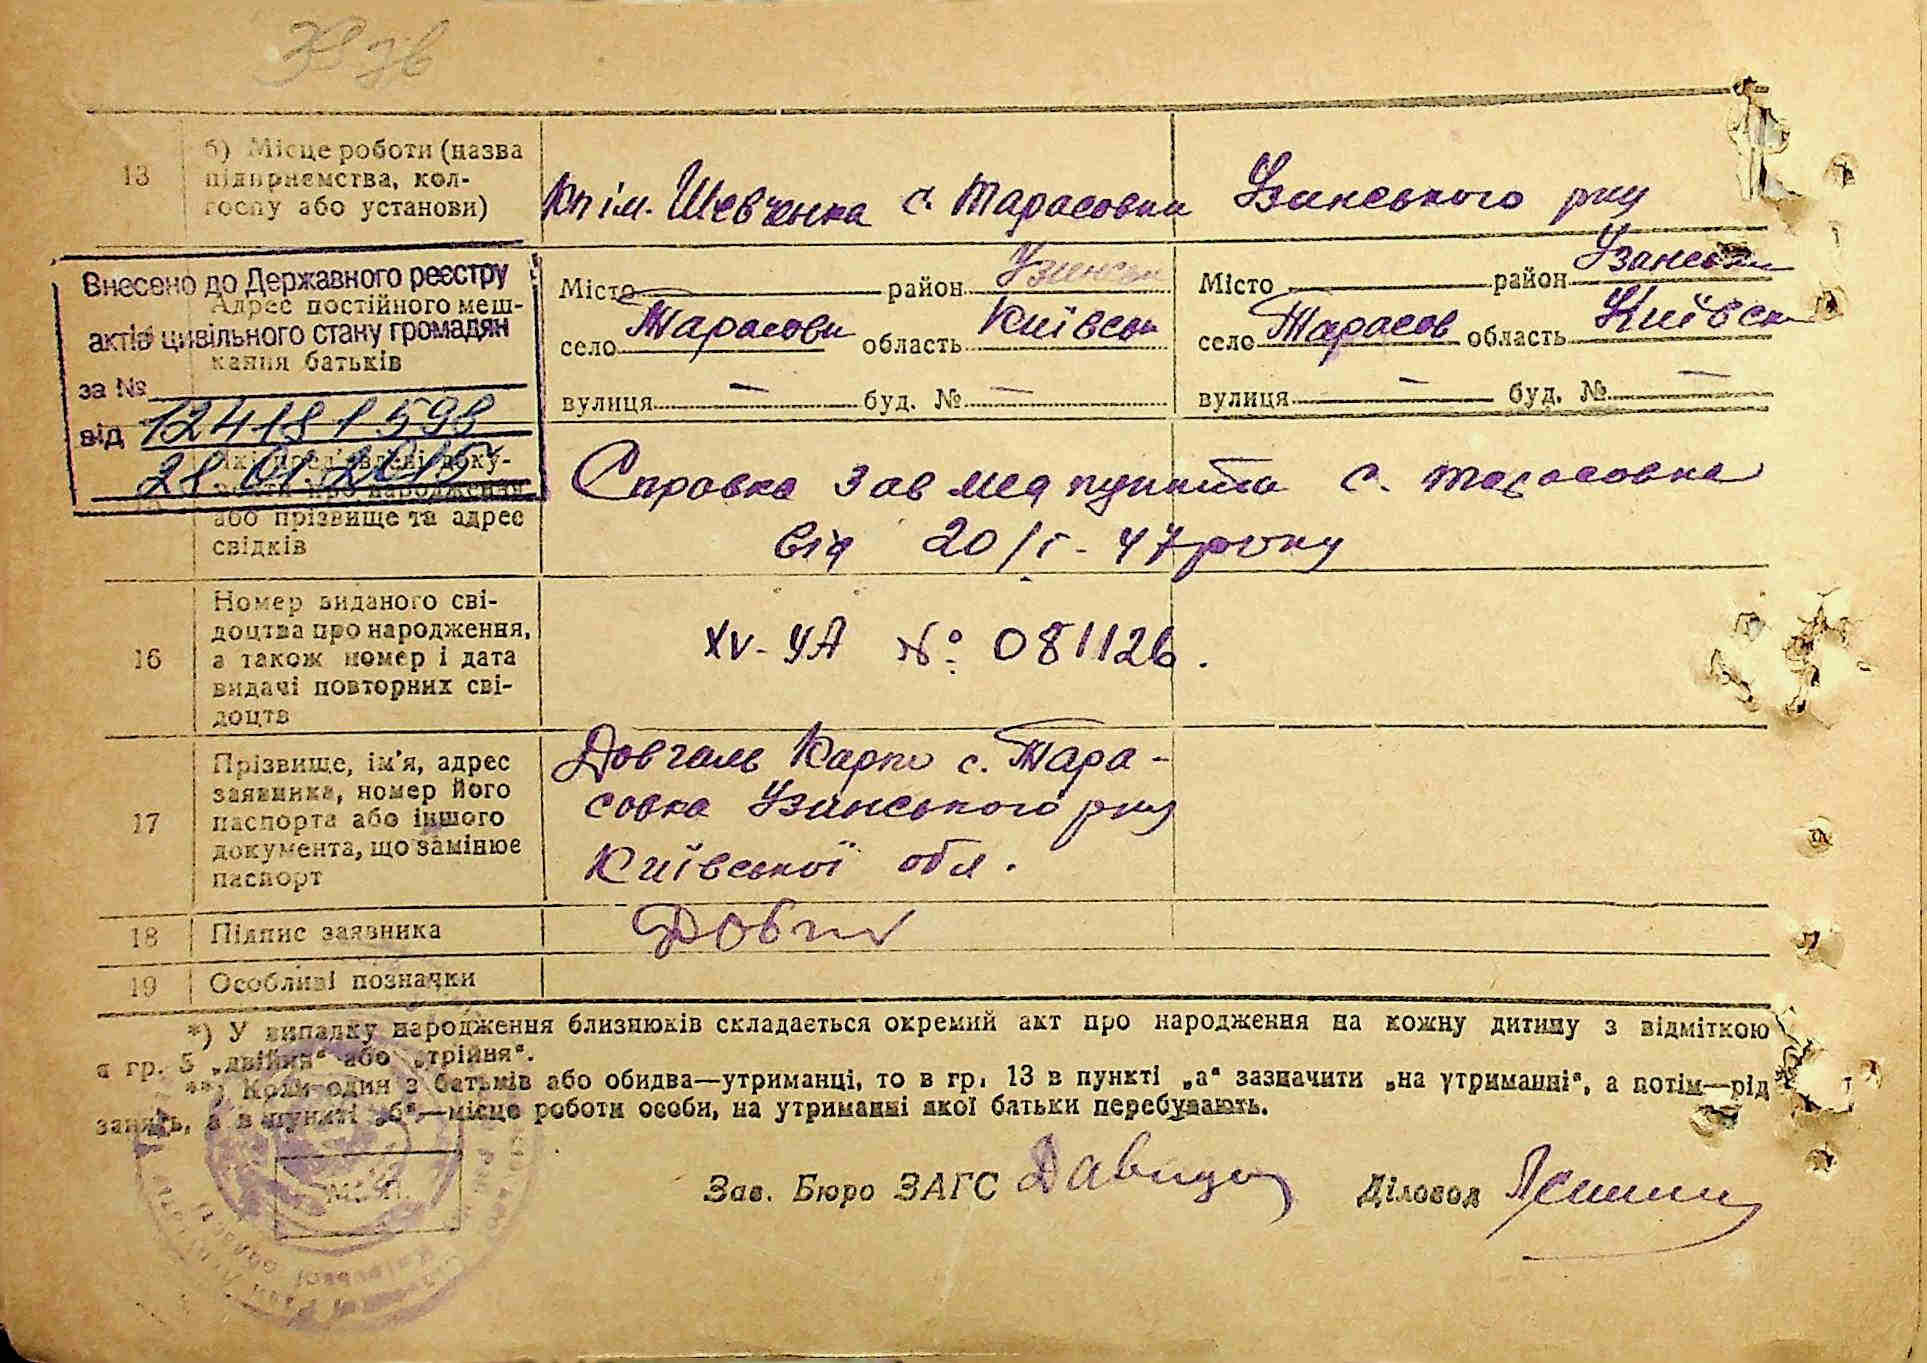 13
б) Місце роботи (назва
підприємства, кол-
госпу або установи)
Кп ім. Шевченка с. Тарасовки Узинського р-ну
Внесено до Державного реєстру
актів цивільного стану громадян
за №
12418 1598
від
28.01.2015
Адрес постійного меш-
кання батьків
Місто район Узинськ
село Тарасовка область Київськ
вулиця — буд. № —
Місто район Узинськ
село Тарасов область Київськ
вулиця — буд. № —
або прізвище та адрес
свідків
Справка зав мед пункта с. Тарасовка
від 20/I - 47 року
16
Номер виданого сві-
доцтва про народження,
а також номер і дата
видачі повторних сві-
доцтв
XV-УА № 081126.
17
Прізвище, ім'я, адрес
заявника, номер його
паспорта або іншого
документа, що замінює
паспорт
Довгаль Карпо с. Тара-
совка Узинського р-ну
Київської обл.
18
Підпис заявника
19
Особливі позначки
*) У випадку народження близнюків складається окремий акт про народження на кожну дитину з відміткою
в гр. 5 „двійня“ або „трійня“.
**) Коли один з батьків або обидва—утриманці, то в гр. 13 в пункті „а“ зазначити „на утриманні“, а потім—рід
занять, а в пункті „б“—місце роботи особи, на утриманні якої батьки перебувають.
Зав. Бюро ЗАГС
Діловод